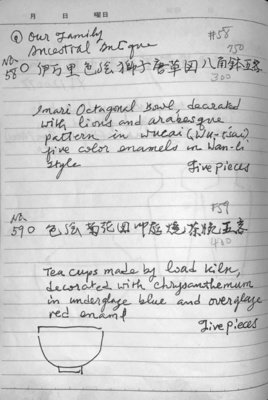 月 日 曜日
@ Our Family
Ancestral Antique
#58
750
No.
58○ 伊万里色絵獅子唐草図八角鉢五客
300
Imari Octagonal Bowl, decorated
with lions and arabesque
pattern in wucai (Wu-tsai)
five color enamels in Wan-li
style
Five pieces
#59
No.
59○ 色絵菊花図 焼茶碗五客
400
Tea cups made by load kiln,
decorated with chrysanthemum
in underglaze blue and overglaze
red enaml
Five pieces